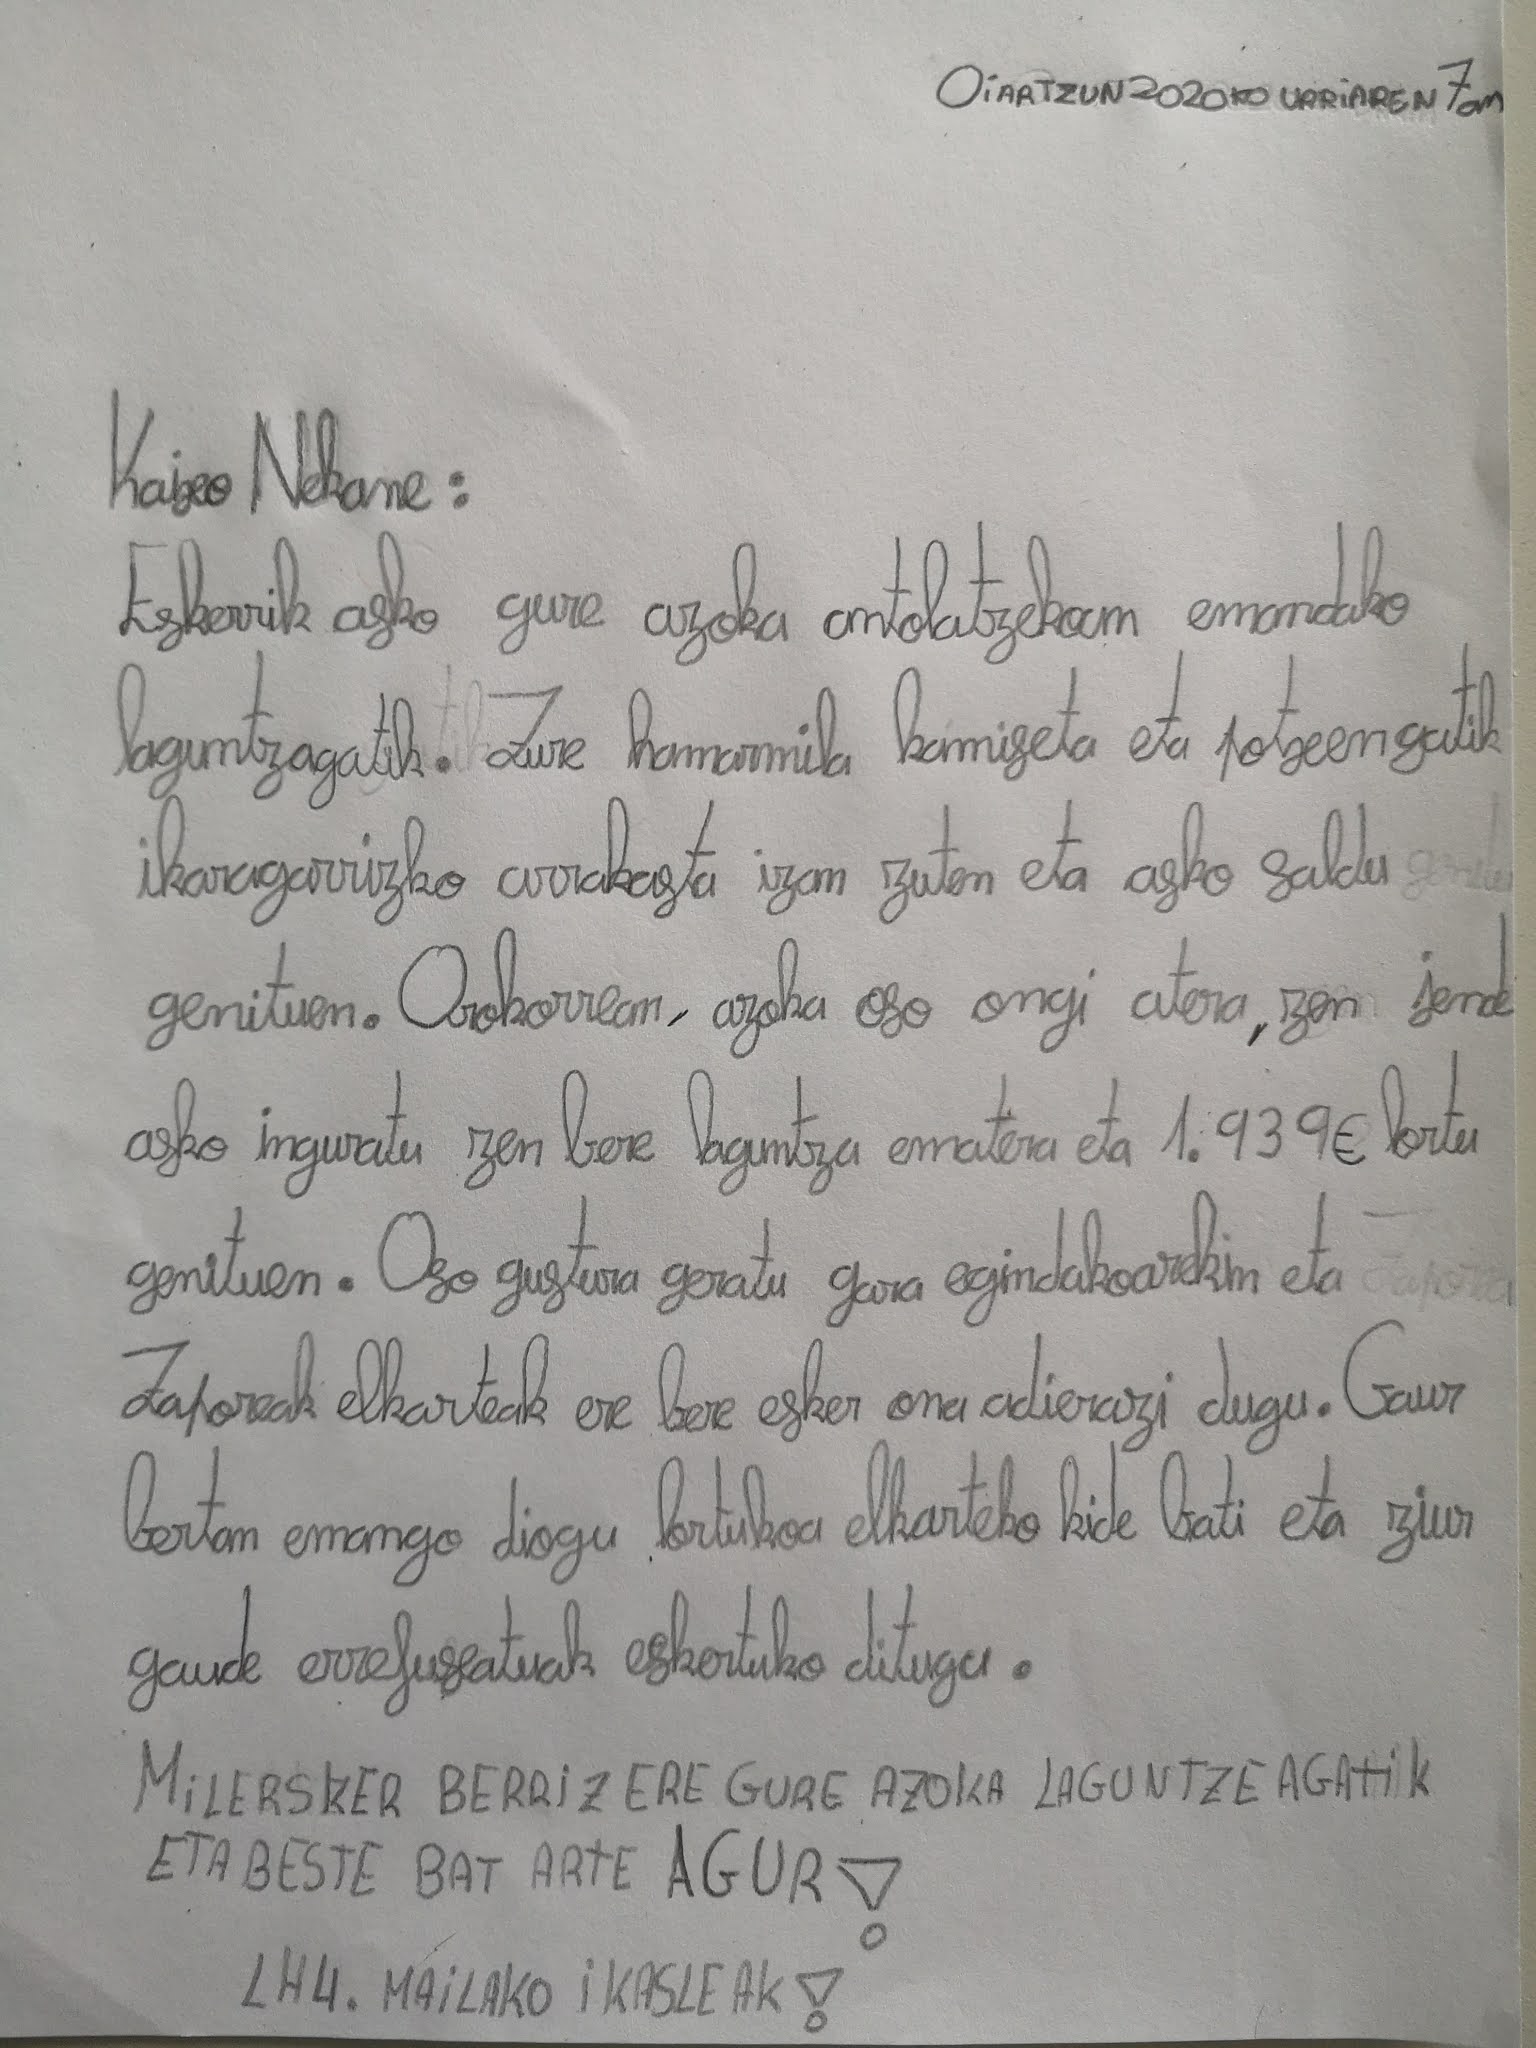 Oiartzun 2020ko urriaren 7an
Kaixo Nekane:
Eskerrik asko gure azoka antolatzekoan emandako
laguntzagatik. Zure hamarmila kamiseta eta potxeengatik
ikaragarrizko arrakasta izan zuten eta asko saldu
genituen. Orokorrean, azoka oso ongi atera, zen jende
asko inguratu zen bere laguntza ematera eta 1.939€ lortu
genituen. Oso gustura geratu gara egindakoarekin eta
Zaporeak elkarteak ere bere esker ona adierazi digu. Gaur
bertan emango diogu lortukoa elkarteko kide bati eta ziur
gaude errefuxeatuak eskertuko ditugu.
MILERSKER BERRIZ ERE GURE AZOKA LAGUNTZEAGATIK
ETA BESTE BAT ARTE AGUR!
LH4. MAILAKO IKASLEAK!